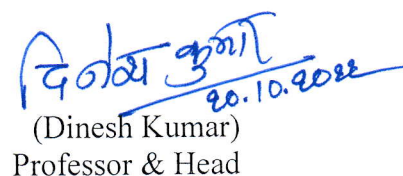 दिनेश कुमार
२०.१०.२०२२
(Dinesh Kumar)
Professor & Head